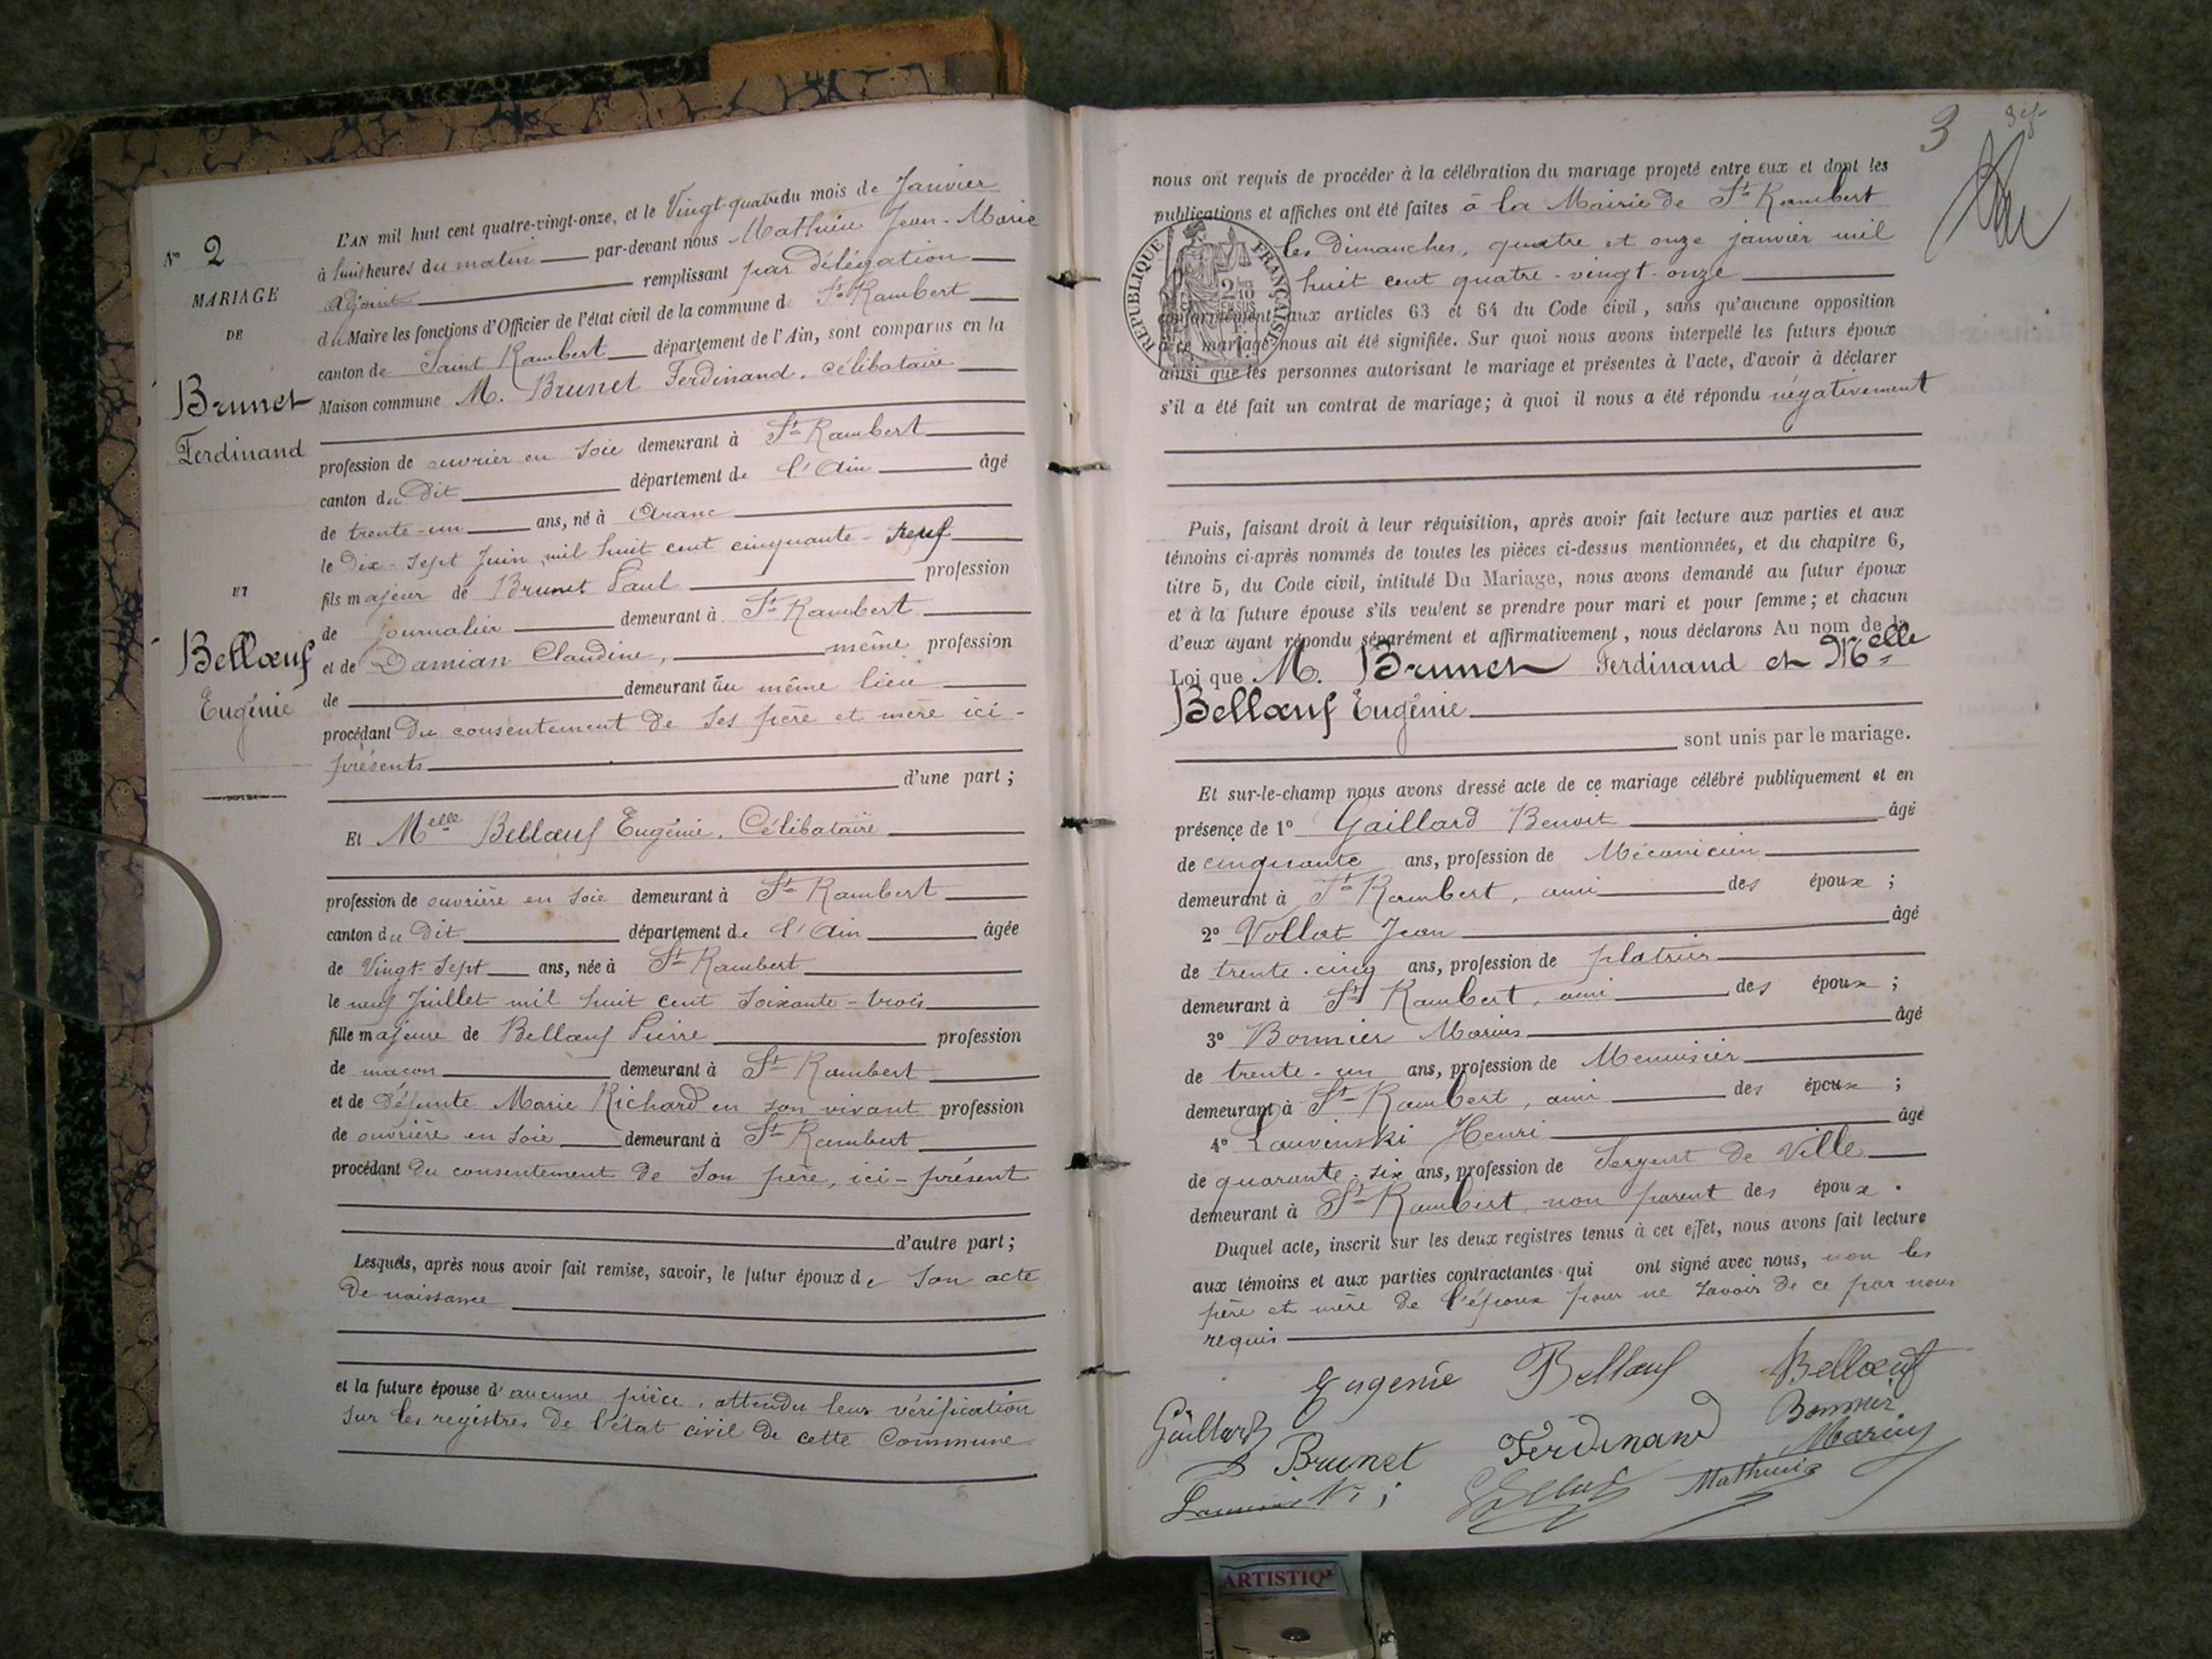 N° 2
MARIAGE
DE
Brunet
Ferdinand
ET
Bellœuf
Eugénie
L'AN mil huit cent quatre-vingt-onze, et le Vingt-quatre du mois de Janvier
à huit heures du matin par-devant nous Mathieu Jean-Marie
adjoint remplissant par délégation
du Maire les fonctions d'Officier de l'état civil de la commune de St Rambert
canton de Saint Rambert département de l'Ain, sont comparus en la
Maison commune M. Brunet Ferdinand, célibataire
profession de ouvrier en soie demeurant à St Rambert
canton du dit département de l'Ain âgé
de trente-un ans, né à Aranc
le dix-sept Juin mil huit cent cinquante-neuf
fils majeur de Brunet Paul profession
de journalier demeurant à St Rambert
et de Damian Claudine, même profession
de demeurant au même lieu
procédant du consentement de ses père et mère ici-
présents
d'une part ;
Et Melle Bellœuf Eugénie, Célibataire
profession de ouvrière en soie demeurant à St Rambert
canton du dit département de l'Ain âgée
de Vingt-sept ans, née à St Rambert
le neuf Juillet mil huit cent soixante-trois
fille majeure de Bellœuf Pierre profession
de maçon demeurant à St Rambert
et de défunte Marie Richard en son vivant profession
de ouvrière en soie demeurant à St Rambert
procédant du consentement de son père, ici-présent
d'autre part ;
Lesquels, après nous avoir fait remise, savoir, le futur époux de son acte
de naissance
et la future épouse d'aucune pièce, attendu leur vérification
sur les registres de l'état civil de cette Commune
3
nous ont requis de procéder à la célébration du mariage projeté entre eux et dont les
publications et affiches ont été faites à la Mairie de St Rambert
les dimanches, quatre et onze janvier mil
huit cent quatre-vingt-onze
RÉPUBLIQUE FRANÇAISE
2/10 EN SUS
conformément aux articles 63 et 64 du Code civil, sans qu'aucune opposition
à ce mariage nous ait été signifiée. Sur quoi nous avons interpellé les futurs époux
ainsi que les personnes autorisant le mariage et présentes à l'acte, d'avoir à déclarer
s'il a été fait un contrat de mariage; à quoi il nous a été répondu négativement
Puis, faisant droit à leur réquisition, après avoir fait lecture aux parties et aux
témoins ci-après nommés de toutes les pièces ci-dessus mentionnées, et du chapitre 6,
titre 5, du Code civil, intitulé Du Mariage, nous avons demandé au futur époux
et à la future épouse s'ils veulent se prendre pour mari et pour femme ; et chacun
d'eux ayant répondu séparément et affirmativement, nous déclarons Au nom de la
Loi que M. Brunet Ferdinand et Melle
Bellœuf Eugénie
sont unis par le mariage.
Et sur-le-champ nous avons dressé acte de ce mariage célébré publiquement et en
présence de 1° Gaillard Benoit âgé
de cinquante ans, profession de Mécanicien
demeurant à St Rambert, ami des époux ;
2° Vollat Jean âgé
de trente-cinq ans, profession de platrier
demeurant à St Rambert, ami des époux ;
3° Bonnier Marius âgé
de trente-un ans, profession de Menuisier
demeurant à St Rambert, ami des époux ;
4° Lauvinski Henri âgé
de quarante-six ans, profession de Sergent de Ville
demeurant à St Rambert, non parent des époux.
Duquel acte, inscrit sur les deux registres tenus à cet effet, nous avons fait lecture
aux témoins et aux parties contractantes qui ont signé avec nous, non les
père et mère de l'époux pour ne savoir de ce par nous
requis
Eugénie Bellœuf Bellœuf
Gaillard Brunet Ferdinand Bonnier
Marius
Mathieu
ARTISTIQ